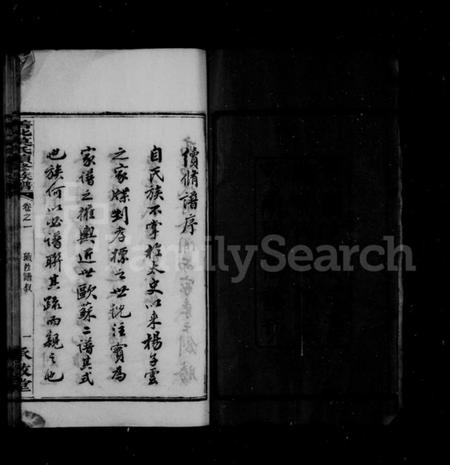 續脩譜序
自氏族不掌於太史以來楊子雲
之家牒劉孝標之世說注實為
家譜之權輿近世歐蘇二譜其式
也族何以必譜聯其疏而親之也
卷之一
譜敘
一
敬堂
FamilySearch